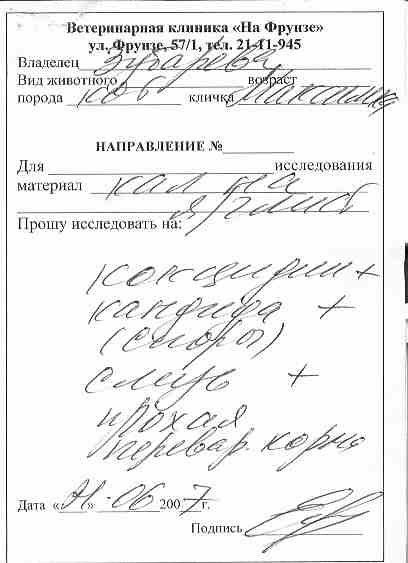 Ветеринарная клиника «На Фрунзе»
ул. Фрунзе, 57/1, тел. 21-11-945
Владелец Зубарева
Вид животного возраст
порода кличка Максимка
НАПРАВЛЕНИЕ №
Для исследования
материал кал на
я/глист
Прошу исследовать на:
кокцидии +
кандида +
(споры)
слизь +
плохая
перевар. корма
Дата «21» 06 2007 г.
Подпись